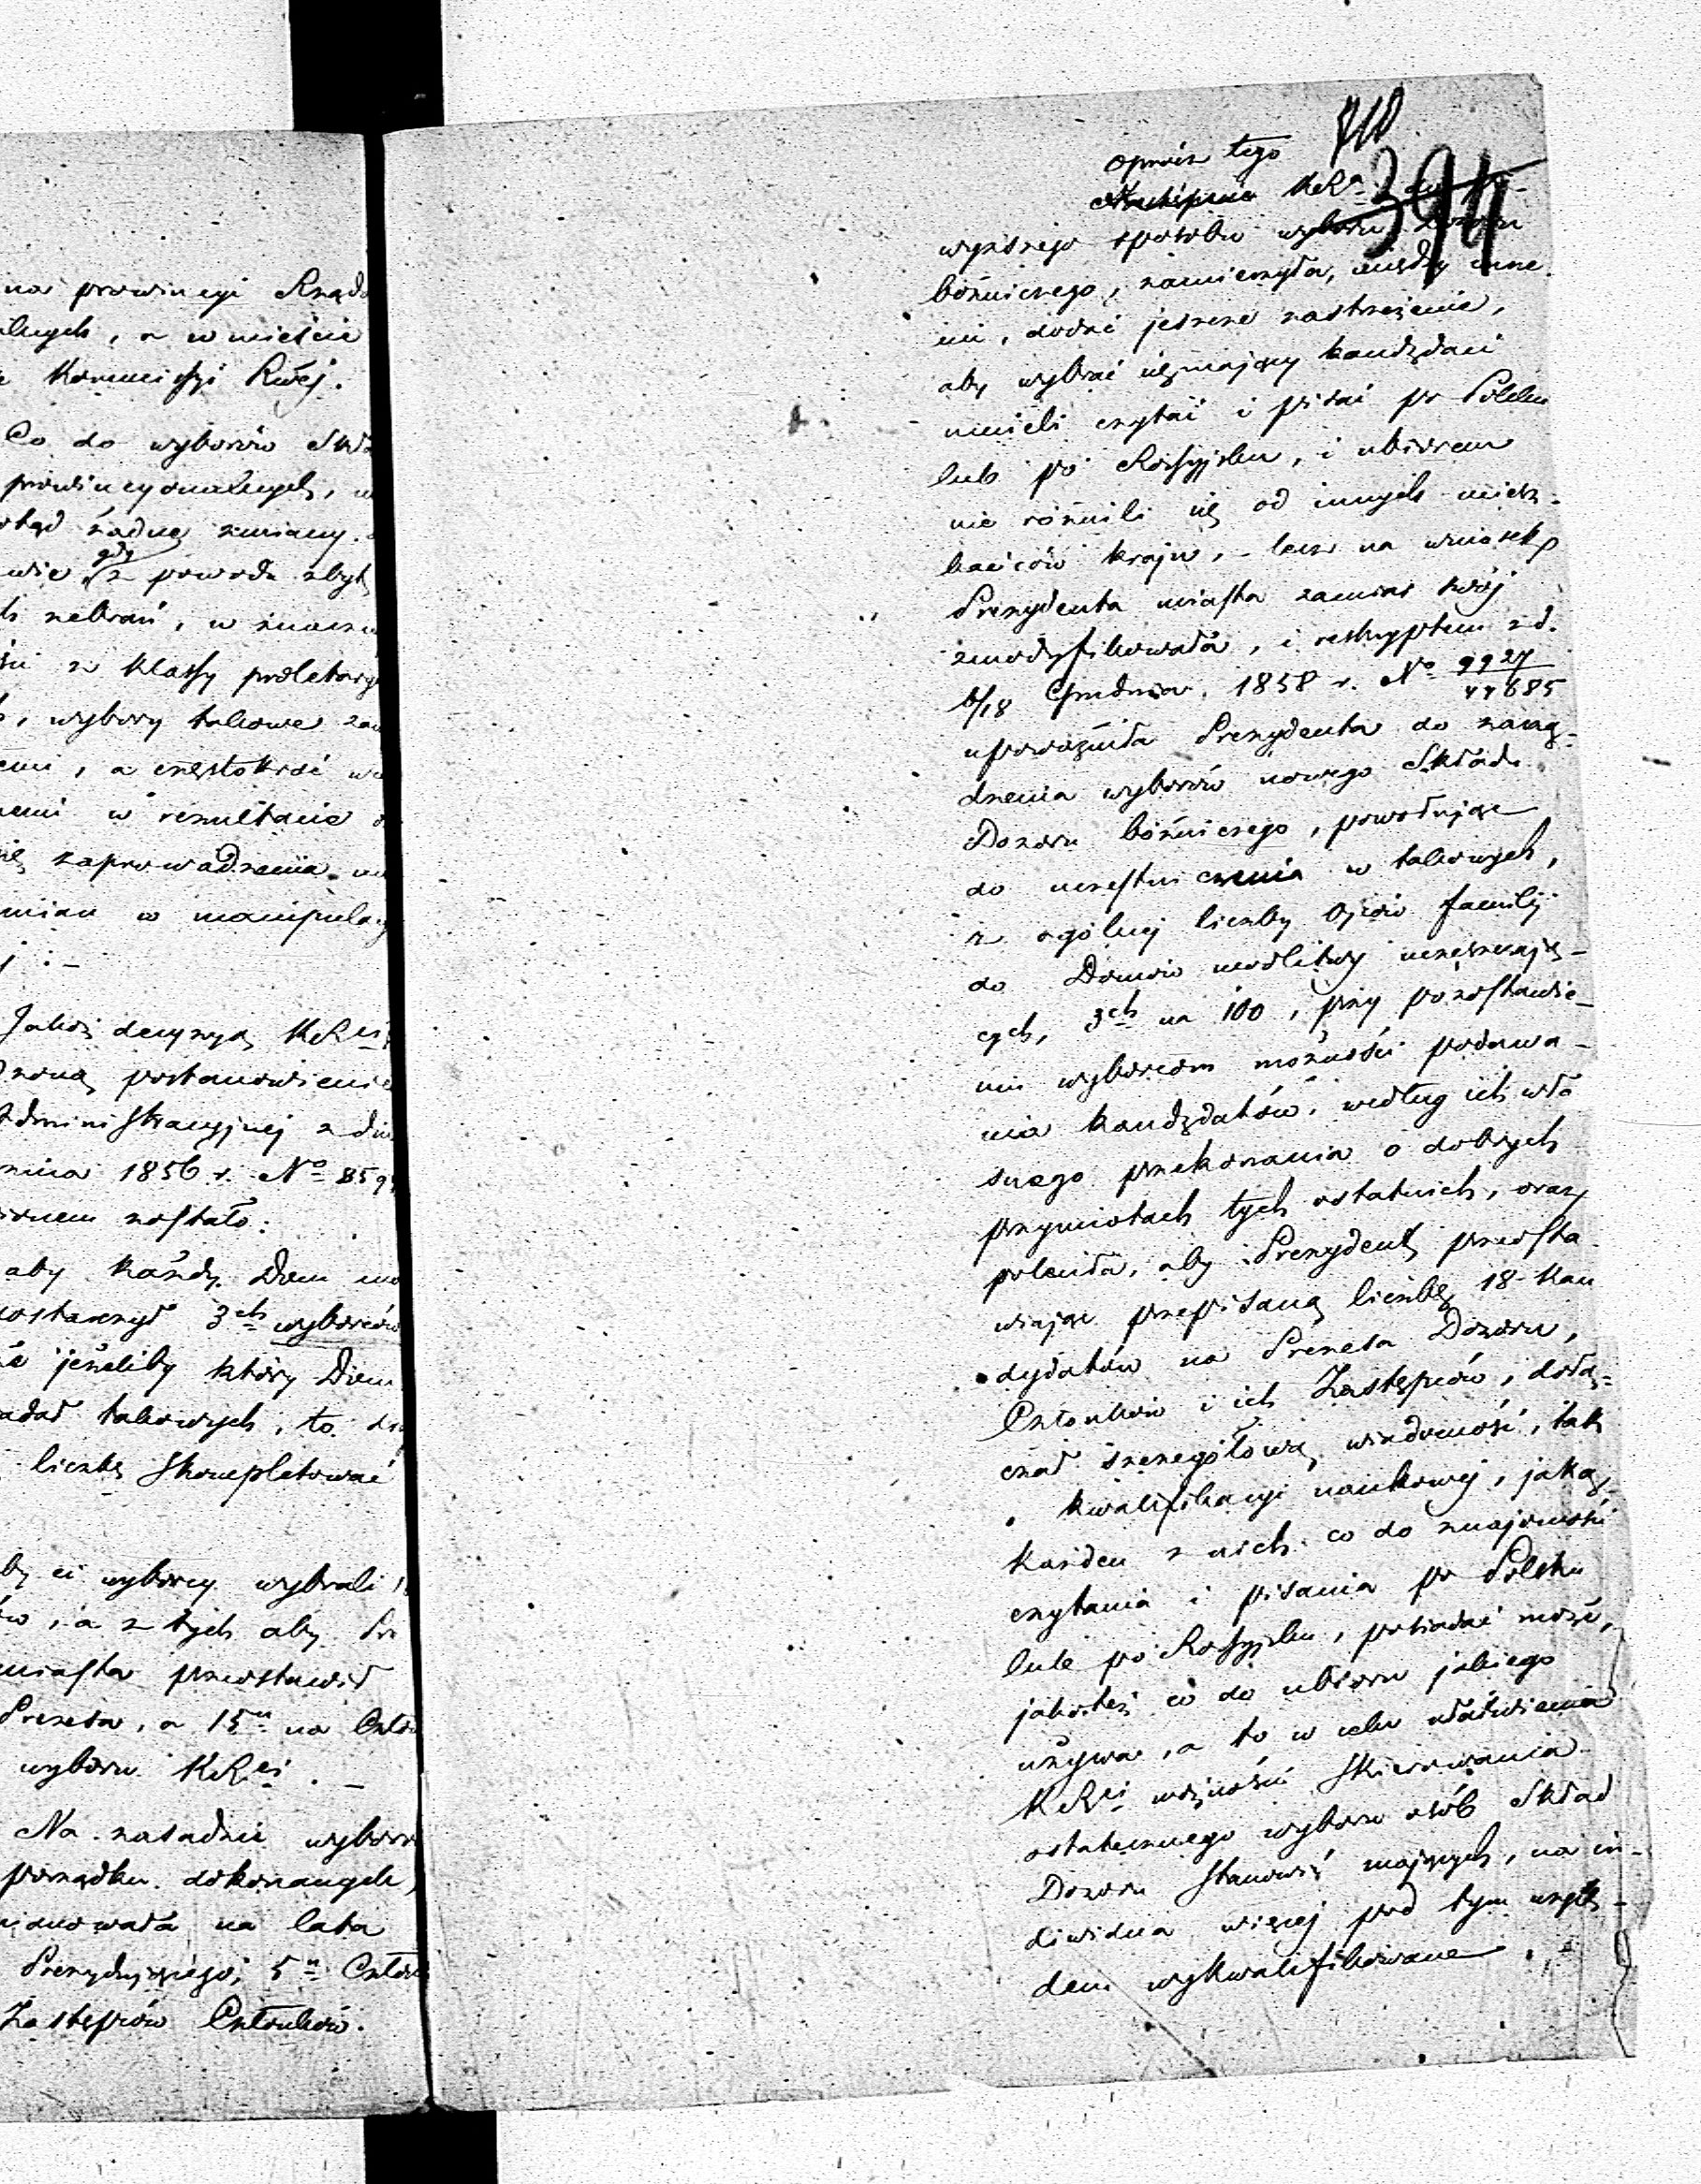 na prowincyi Rząd
lnych, a w mieście
Kommissyi Rządowej.
Co do wyborów Skła
prowincyonalnych, w
dotąd żadnej zmiany.
wie, gdy z powodu zbyt
h zebrań, w znaczn
ści z klassy proletary
, wybory takowe za
emi, a częstokroć
nemi w rezultacie
się zaprowadzenia
mian w manipulacy
j: –
Jakoż decyzyą KRSi
dzoną postanowienie
Administracyjnej z dn
nia 1856 r. No 859
ionem zostało:
aby każdy Dom mo
dostarczył 3ch wyborców
że jeżeliby który Dom
adał takowych, to
liczbę skompletować
by ci wyborcy wybrali
ów, a z tych aby Pre
miasta przedstawił
Prezesa, a 15u na Człon
wyboru KRSi. –
Na zasadzie wyborów
porządku dokonanych,
minowała na lata
Prezydującego, 5u Człon
Zastępców Członków.
710
394
oprócz tego
Następnie KRSa
wyższego sposobu wyboru Dozoru
bóżniczego, zamierzyła, między inne-
mi, dodać jeszcze zastrzeżenie,
aby wybrać się mający kandydaci
umieli czytać i pisać po Polsku
lub po Rossyjsku, i ubiorem
nie różnili się od innych miesz-
kańców kraju, – lecz na wniosek
Prezydenta miasta zamiar swój
zmodyfikowała, i reskryptem z d.
6/18 Grudnia 1858 r. No 9927/44685
upoważniła Prezydenta do zarzą-
dzenia wyborów nowego Składu
Dozoru bóżniczego, powołując
do uczestniczenia w takowych,
z ogólnej liczby Ojców familij
do Domów modlitwy uczęszczają-
cych, 3ch na 100, przy pozostawie-
niu wyborcom możności podawa-
nia kandydatów, według ich wła
snego przekonania o dobrych
przymiotach tych ostatnich, oraz
poleciła, aby Prezydent przedsta
wiając przepisaną liczbę 18 Kan
dydatów na Prezesa Dozoru,
Członków i ich Zastępców, dołą-
czał szczegółową wiadomość, tak
kwalifikacyi naukowej, jaką
każden z nich co do znajomości
czytania i pisania po Polsku
lub po Rossyjsku, posiadać może,
jakoteż co do ubioru jakiego
używa, a to w celu ułatwienia
KRSi możności skierowania
ostatecznego wyboru osób Skład
Dozoru stanowić mających, na in-
dividua więcej pod tym wzglę-
dem wykwalifikowane.